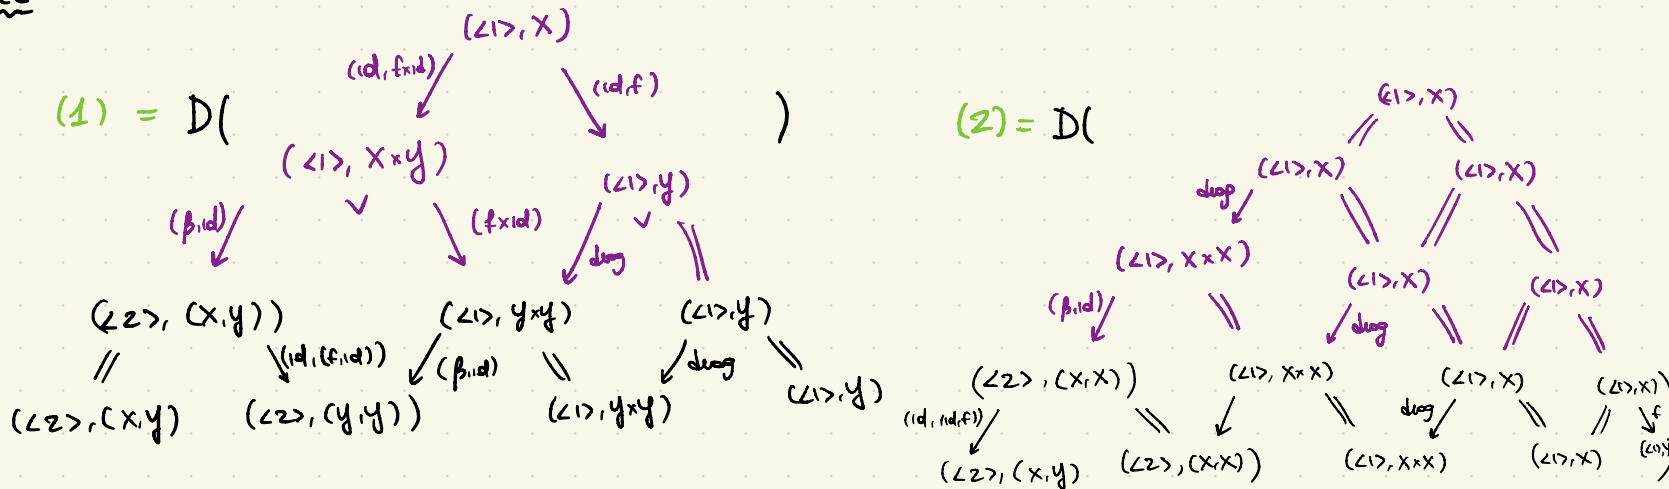 (<1>, X)
(id, f×id)
(id, f)
(1) = D( )
(<1>, X×Y)
(<1>, Y)
(β, id)
(f×id)
diag
(<2>, (X,Y))
(<1>, Y×Y)
(<1>, Y)
(id, (f,id))
(β, id)
diag
(<2>, (X,Y)
(<2>, (Y,Y))
(<1>, Y×Y)
(<1>, Y)
(<1>, X)
(2) = D(
(<1>, X)
(<1>, X)
diag
(<1>, X×X)
(<1>, X)
(<1>, X)
(β, id)
diag
(<2>, (X,X))
(<1>, X×X)
(<1>, X)
(<1>, X)
(id, (id,f))
diag
f
(<2>, (X,Y)
(<2>, (X,X))
(<1>, X×X)
(<1>, X)
(<1>, Y
)